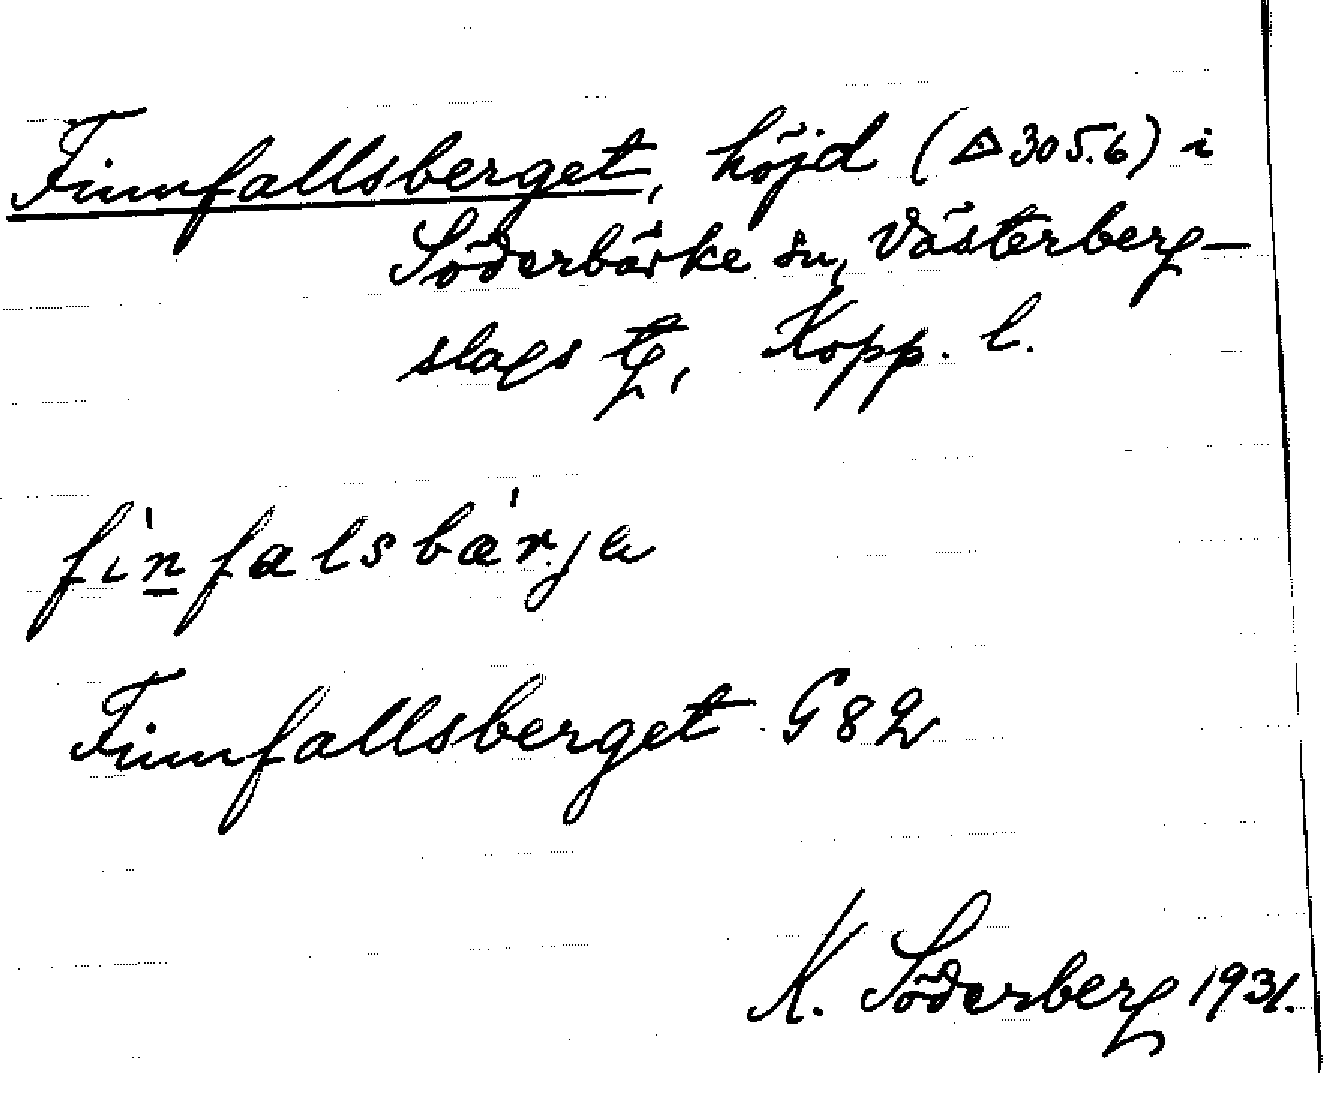 Finnfallsberget, höjd (△ 305.6) i
Söderbärke sn, Västerberg-
slags tg, Kopp. l.
fìn̲falsbæŕja
Finnfallsberget G 82
K. Söderberg 1931.